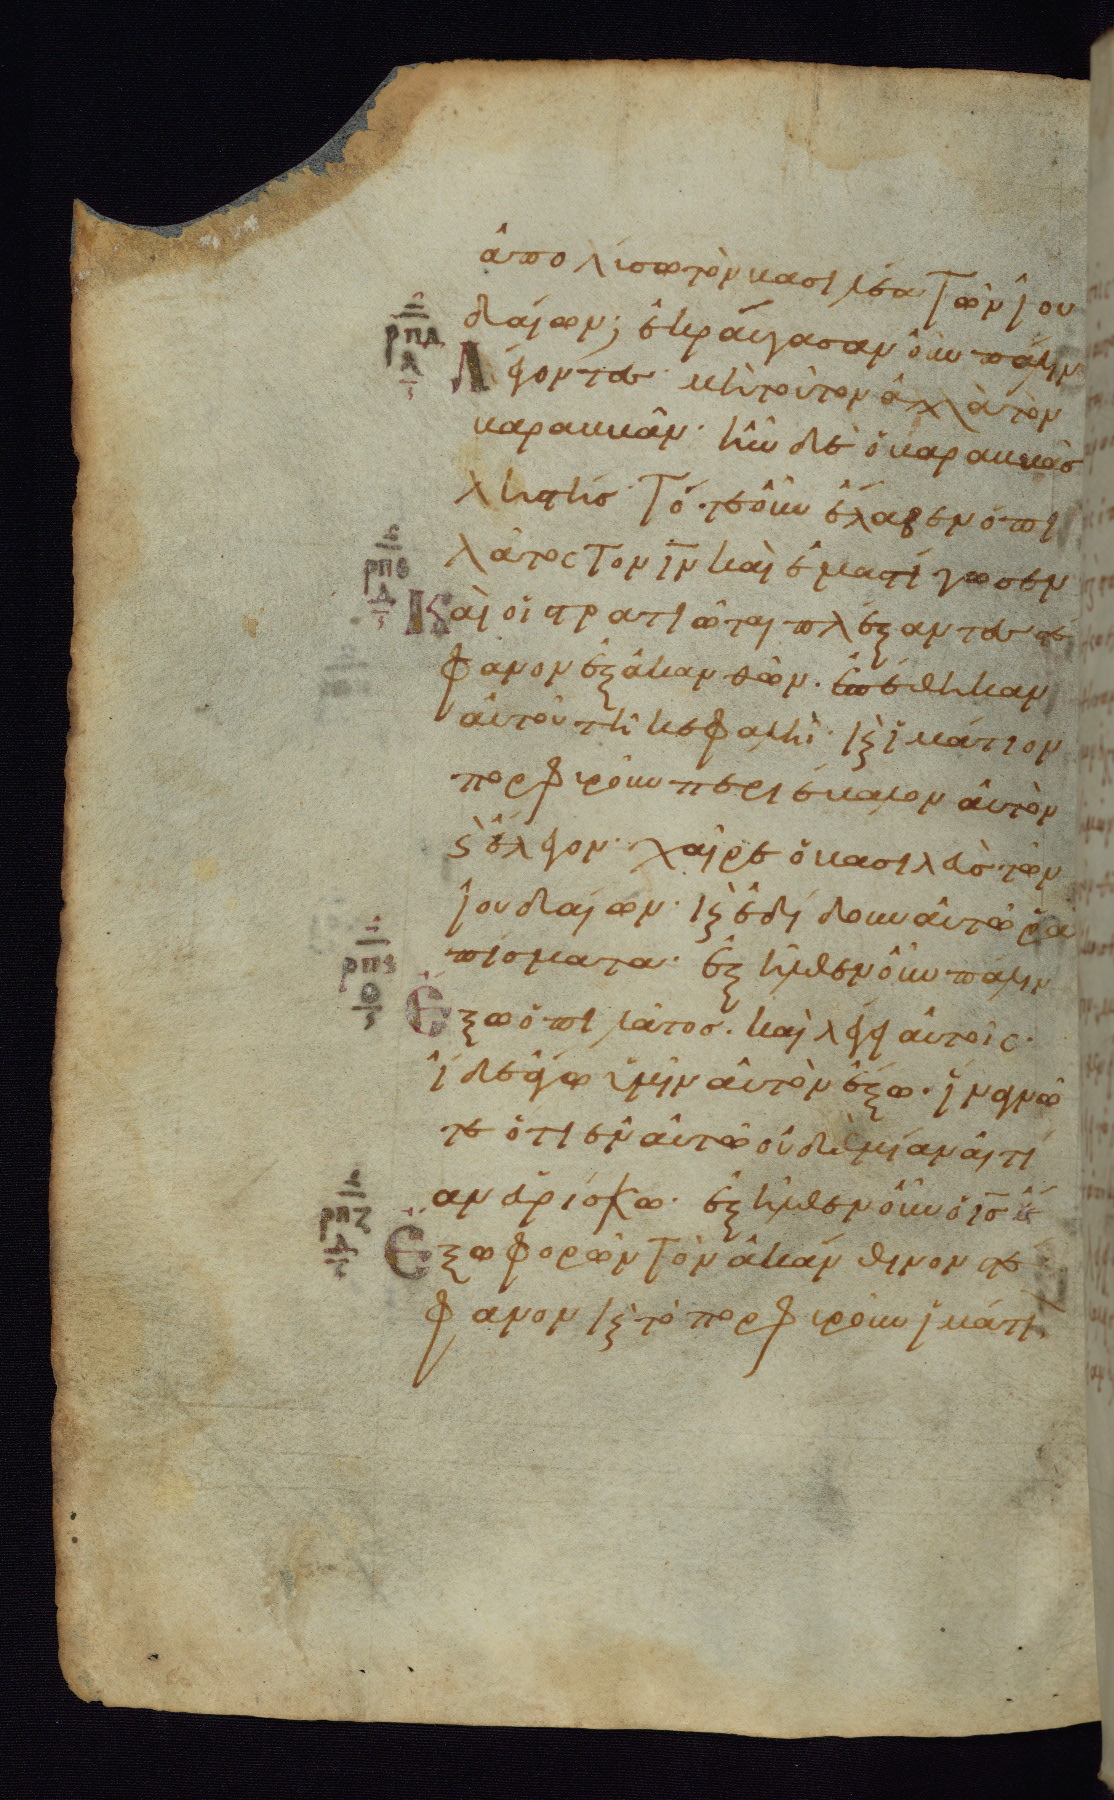 ἀπολύσω τὸν βασιλέα τῶν ἰου
ρπδ
δαίων; ἐκραύγασαν οὖν πάλιν
λέγοντες· μὴ τοῦτον ἀλλὰ τὸν
βαραββᾶν· ἦν δὲ ὁ βαραββᾶς
λῃστής· τότε οὖν ἔλαβεν ὁ πι
λάτος τὸν ἰν καὶ ἐμαστίγωσεν
ρπε
δ
καὶ οἱ στρατιῶται πλέξαντες στέ
φανον ἐξ ἀκανθῶν· ἐπέθηκαν
αὐτοῦ τῆ κεφαλῆ· κ(αὶ) ἱμάτιον
πορφυροῦν περιέβαλον αὐτὸν
κ(αὶ) ἔλεγον· χαῖρε ὁ βασιλεὺς τῶν
ἰουδαίων· κ(αὶ) ἐδίδουν αὐτῶ ῥα
πίσματα· ἐξῆλθεν οὖν πάλιν
ρπς
θ
ἔξω ὁ πιλάτος· καὶ λέγει αὐτοῖς·
ἴδε ἄγω ὑμῖν αὐτὸν ἔξω· ἵνα γνῶ
τε ὅτι ἐν αὐτῶ οὐδεμίαν αἰτί
αν εὑρίσκω· ἐξῆλθεν οὖν ὁ ις
ρπζ
δ
ἔξω φορῶν τὸν ἀκάνθινον στέ
φανον κ(αὶ) τὸ πορφυροῦν ἱμάτι